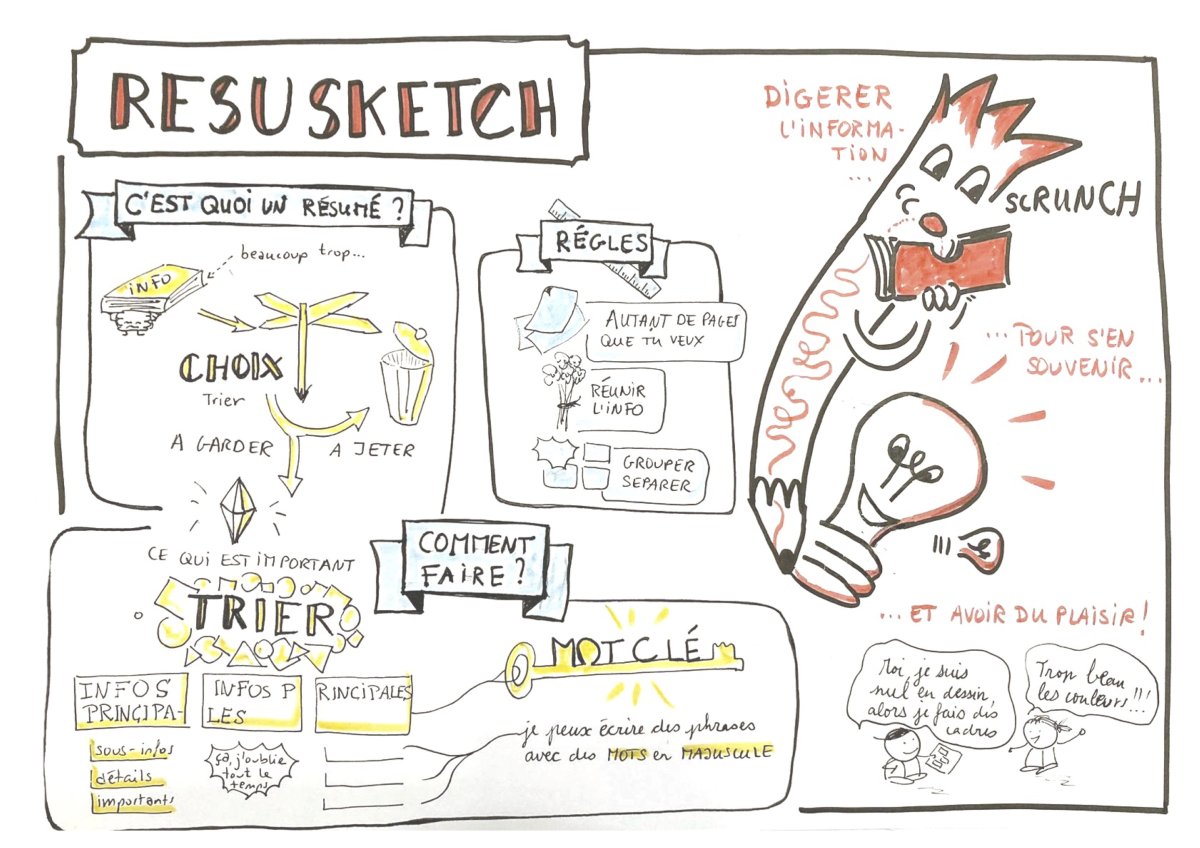 RESUSKETCH
C'EST QUOI UN RÉSUMÉ ?
beaucoup trop...
INFO
CHOIX
Trier
A GARDER
A JETER
CE QUI EST IMPORTANT
RÉGLES
AUTANT DE PAGES
QUE TU VEUX
RÉUNIR
L'INFO
GROUPER
SEPARER
DIGERER
L'INFORMA-
TION
...
SCRUNCH
... POUR S'EN
SOUVENIR...
... ET AVOIR DU PLAISIR !
Moi, je suis
nul en dessin,
alors je fais des
cadres
Trop beau
les couleurs !!!
COMMENT
FAIRE ?
TRIER
INFOS
PRINCIPA-
INFOS P
LES
RINCIPALES
sous-infos
détails
importants
ça, j'oublie
tout le
temps
MOT CLÉ
je peux écrire des phrases
avec des MOTS en MAJUSCULE